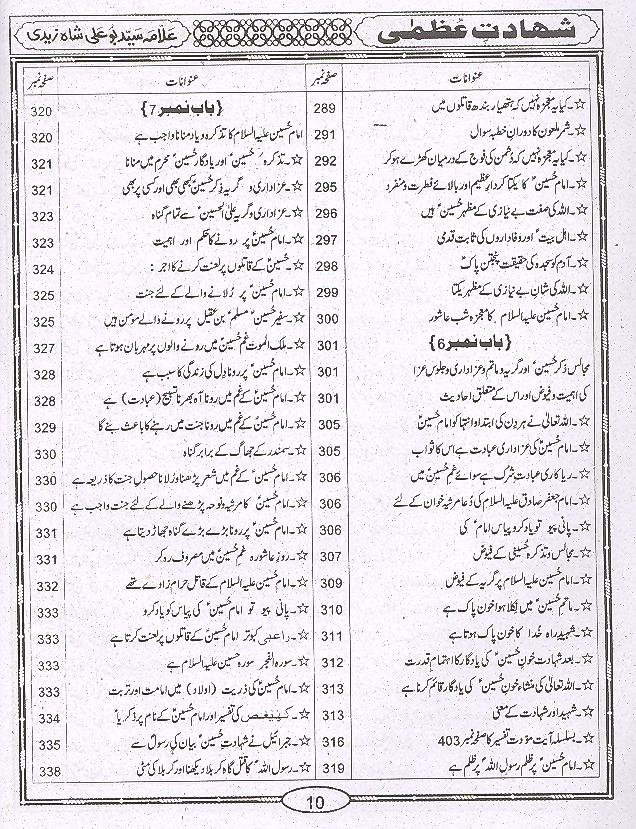 شھادتِ عُظمٰی
علامہ سید بو علی شاہ زیدی
عنوانات صفحہ نمبر
☆۔کیا یہ معجزہ نہیں کہ ہتھیار بند قاتلوں میں 289
☆۔شمر ملعون کا دورانِ خطبہ سوال 291
☆۔کیا یہ معجزہ نہیں کہ دُشمن کی فوج کے درمیان کھڑے ہو کر 292
☆۔امام حُسینؑ کا یکتا کردارِ عظیم اور بالائے فطرت و منفرد 295
☆۔اللہ کی صفت بے نیازی کے مظہر حُسینؑ ہیں 296
☆۔اہل بیتؑ اور وفاداروں کی ثابت قدمی 297
☆۔آدم کو سجدہ کی حقیقت پنجتن پاکؑ 298
☆۔اللہ کی شانِ بے نیازی کے مظہر یکتا 299
☆۔امام حُسین علیہ السلام کا معجزہ شب عاشور 300
{باب نمبر6} 301
مجالس ذکر حُسینؑ اور گریہ و ماتم و عزاداری و جلوس عزا 301
کی اہمیت و فیوض اور اس کے متعلق احادیث 301
☆۔اللہ تعالیٰ نے ہر دِن کی ابتدا و انتہا کو امام حُسینؑ 305
☆۔امام حُسینؑ کی عزاداری عبادت ہے اس کا ثواب 305
☆۔ریا کاری عبادت شرک ہے سوائے غمِ حُسینؑ میں 306
☆۔امام جعفر صادق علیہ السلام کی دُعا مرثیہ خوان کے لئے 306
☆۔پانی پیو تو یاد کرو پیاس امامؑ کی 306
☆۔مجالس و تذکرہ حُسینی کے فیوض 307
☆۔امام حُسین علیہ السلام پر گریہ کے فیوض 309
☆۔ماتم حُسینؑ میں نکلا ہوا خون پاک ہے 310
☆۔شہید راہ خُدا کا خون پاک ہوتا ہے 311
☆۔بعد شہادت خونِ حُسینؑ کی یادگار کا اہتمام قدرت 312
☆۔اللہ تعالیٰ کی منشاء خونِ حُسینؑ کی یادگار قائم کرنا ہے 313
☆۔شہید اور شہادت کے معنی 313
☆۔بسلسلہ آیت مودت تفسیر کا صفحہ نمبر 403 316
☆۔امام حُسینؑ پر ظلم رسول اللہؐ پر ظلم ہے 319
عنوانات صفحہ نمبر
{باب نمبر7} 320
امام حُسین علیہ السلام کا تذکرہ و یاد منانا واجب ہے 320
☆۔تذکرہ حُسینؑ اور یادگار حُسینؑ محرم میں منانا 321
☆۔عزاداری و گریہ و ذکرِ حُسینؑ کبھی بھی اور کسی پر بھی 321
☆۔عزاداری و گریہ علیٰ الحسینؑ سے تمام گناہ 323
☆۔امام حُسینؑ پر رونے کا حکم اور اہمیت 323
☆۔حُسینؑ کے قاتلوں پر لعنت کرنے کا اجر : 324
☆۔امام حُسینؑ پر رُلانے والے کے لئے جنت 325
☆۔سفیر حُسینؑ مسلمؑ بن عقیلؑ پر رونے والے مومن ہیں 325
☆۔ملک الموت غمِ حُسینؑ میں رونے والوں پر مہربان ہوتا ہے 327
☆۔امام حُسینؑ پر رونا دِل کی زندگی کا سبب ہے 328
☆۔امام حُسینؑ کے غم میں رونا آہ بھرنا تسبیح (عبادت) ہے 328
☆۔امام حُسینؑ کے غم میں رونا جنت میں رہنے کا باعث بنے گا 329
☆۔سمندر کے جھاگ کے برابر گناہ 330
☆۔امام حُسینؑ کے غم میں شعر پڑھنا و رُلانا حصولِ جنت کا ذریعہ ہے 330
☆۔امام حُسینؑ کا مرثیہ و نوحہ پڑھنے والے کے لئے جنت واجب ہے 330
☆۔امام حُسینؑ پر رونا بڑے بڑے گناہ جھاڑ دیتا ہے 331
☆۔روزِ عاشورہ غم حُسینؑ میں مصروف رہ کر 331
☆۔امام حُسین علیہ السلام کے قاتل حرام زادے تھے 332
☆۔پانی پیو تو امام حُسینؑ کی پیاس کو یاد کرو 333
☆۔راعبی کبوتر امام حُسینؑ کے قاتلوں پر لعنت کرتا ہے 333
☆۔سورہ الفجر سورہ حسین علیہ السلام ہے 333
☆۔امام حُسینؑ کی ذریت (اولاد) میں امامت اور تربت 333
☆۔کھیعص کی تفسیر اور امام حُسینؑ کے نام پر ذکریاؑ 334
☆۔جبرائیل نے شہادتِ حُسینؑ بیان کی رسولؐ سے 335
☆۔رسول اللہؐ کا قتل گاہ کربلا دیکھنا اور کربلا کی مٹی 338
10